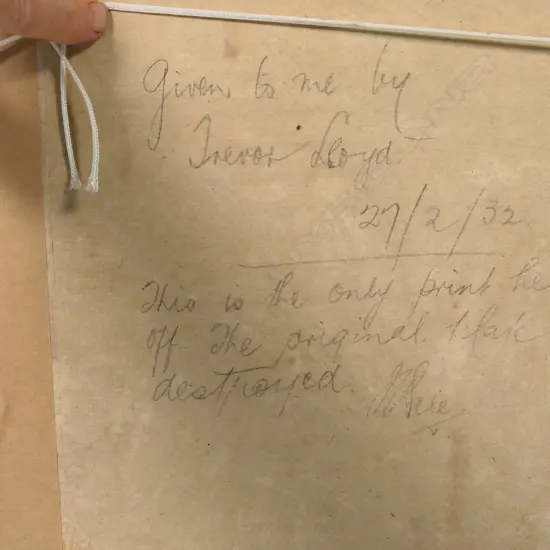 Given to me by
Trevor Lloyd
27/2/32
This is the only print he
off the original
destroyed.